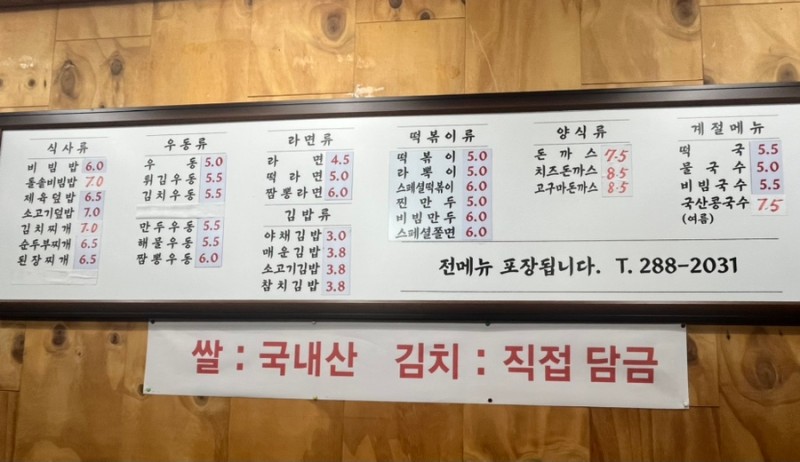 식사류
비빔밥 6.0
돌솥비빔밥 7.0
제육덮밥 6.5
소고기덮밥 7.0
김치찌개 7.0
순두부찌개 6.5
된장찌개 6.5
우동류
우동 5.0
튀김우동 5.5
김치우동 5.5
만두우동 5.5
해물우동 5.5
짬뽕우동 6.0
라면류
라면 4.5
떡라면 5.0
짬뽕라면 6.0
김밥류
야채김밥 3.0
매운김밥 3.8
소고기김밥 3.8
참치김밥 3.8
떡볶이류
떡볶이 5.0
라볶이 5.0
스페셜떡볶이 6.0
찐만두 5.0
비빔만두 6.0
스페셜쫄면 6.0
양식류
돈까스 7.5
치즈돈까스 8.5
고구마돈까스 8.5
계절메뉴
떡국 5.5
물국수 5.0
비빔국수 5.5
국산콩국수 7.5
(여름)
전메뉴 포장됩니다. T. 288-2031
쌀 : 국내산 김치 : 직접 담금